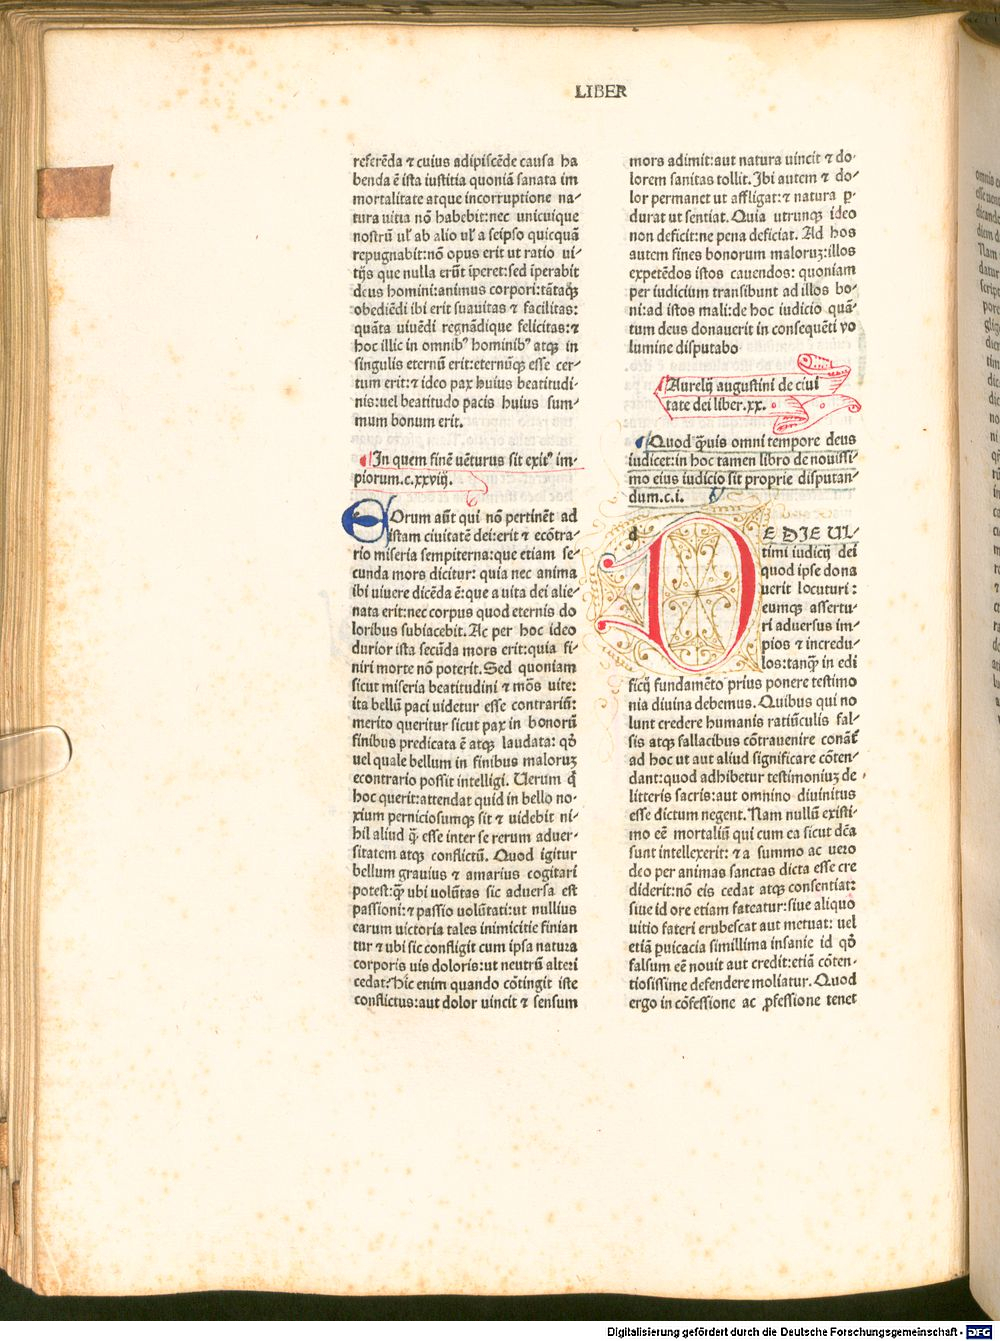 LIBER
referēda ⁊ cuius adipiscēde causa ha
benda ē ista iustitia quoniā sanata im
mortalitate atque incorruptione na-
tura uitia nō habebit:nec unicuique
nostrū ul' ab alio ul' a seipso quicquā
repugnabit:nō opus erit ut ratio ui-
tijs que nulla erūt iperet:sed iperabit
deus homini:animus corpori:tātaqꝫ
obediēdi ibi erit suauitas ⁊ facilitas:
quāta uiuēdi regnādique felicitas:⁊
hoc illic in omnibꝰ hominibꝰ atqꝫ in
singulis eternū erit:eternūqꝫ esse cer-
tum erit:⁊ ideo pax huius beatitudi-
nis:uel beatitudo pacis huius sum-
mum bonum erit.
In quem finē uēturus sit exitꝰ im-
piorum.c.xxviij.
EOrum aūt qui nō pertinēt ad
istam ciuitatē dei:erit ⁊ ecōtra-
rio miseria sempiterna:que etiam se-
cunda mors dicitur: quia nec anima
ibi uiuere dicēda ē:que a uita dei alie-
nata erit:nec corpus quod eternis do
loribus subiacebit. Ac per hoc ideo
durior ista secūda mors erit:quia fi-
niri morte nō poterit. Sed quoniam
sicut miseria beatitudini ⁊ mōs uite:
ita bellū paci uidetur esse contrariū:
merito queritur sicut pax in bonorū
finibus predicata ē atqꝫ laudata: qō
uel quale bellum in finibus maloruꝫ
econtrario possit intelligi. Uerum q̄
hoc querit:attendat quid in bello no-
xium perniciosumqꝫ sit ⁊ uidebit ni-
hil aliud q̄ꝫ esse inter se rerum aduer-
sitatem atqꝫ conflictū. Quod igitur
bellum grauius ⁊ amarius cogitari
potest:q̄ꝫ ubi uolūtas sic aduersa est
passioni:⁊ passio uolūtati:ut nullius
earum uictoria tales inimicitie finian
tur ⁊ ubi sic confligit cum ipsa natura
corporis uis doloris:ut neutrū alteri
cedat? Hic enim quando cōtingit iste
conflictus:aut dolor uincit ⁊ sensum
mors adimit:aut natura uincit ⁊ do-
lorem sanitas tollit. Ibi autem ⁊ do-
lor permanet ut affligat:⁊ natura ꝑ-
durat ut sentiat. Quia utrunqꝫ ideo
non deficit:ne pena deficiat. Ad hos
autem fines bonorum maloruꝫ:illos
expetēdos istos cauendos: quoniam
per iudicium transibunt ad illos bo-
ni:ad istos mali:de hoc iudicio quā-
tum deus donauerit in consequēti vo
lumine disputabo
Aurelij augustini de ciui
tate dei liber.xx.
Quod q̄uis omni tempore deus
iudicet:in hoc tamen libro de nouissi-
mo eius iudicio sit proprie disputan-
dum.c.i.
d
DE DIE UL-
timi iudicij dei
quod ipse dona
uerit locuturi :
eumqꝫ assertu-
ri aduersus im-
pios ⁊ incredu-
los:tanq̄ꝫ in edi
ficij fundamēto prius ponere testimo
nia diuina debemus. Quibus qui no
lunt credere humanis ratiūculis fal-
sis atqꝫ fallacibus cōtrauenire conāt̄
ad hoc ut aut aliud significare cōten-
dant:quod adhibetur testimoniuꝫ de
litteris sacris:aut omnino diuinitus
esse dictum negent. Nam nullū existi-
mo eē mortaliū qui cum ea sicut dēa
sunt intellexerit: ⁊ a summo ac uero
deo per animas sanctas dicta esse cre
diderit:nō eis cedat atqꝫ consentiat:
siue id ore etiam fateatur:siue aliquo
uitio fateri erubescat aut metuat: uel
etiā ꝑuicacia simillima insanie id qō
falsum eē nouit aut credit:etiā cōten-
tiosissime defendere moliatur. Quod
ergo in cōfessione ac ꝓfessione tenet
Digitalisierung gefördert durch die Deutsche Forschungsgemeinschaft - DFG